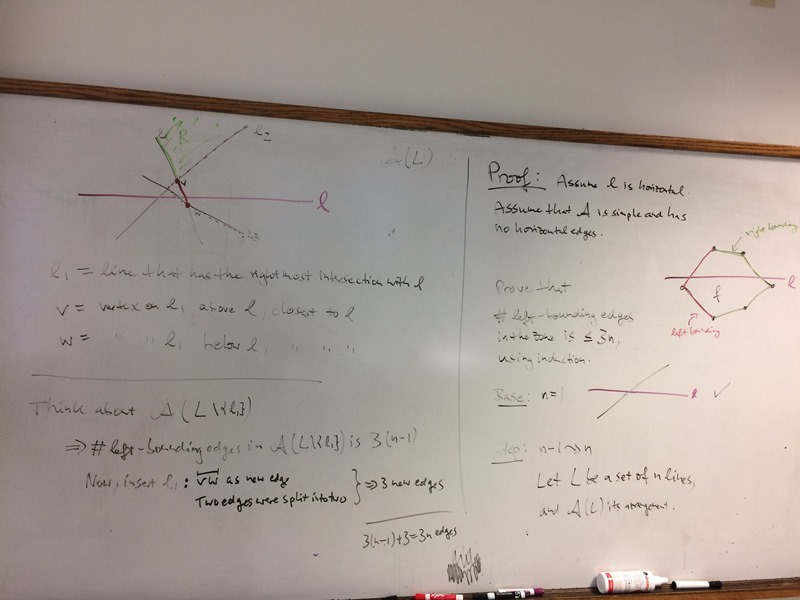 R
l₂
v
l
w
l₃
A(L)
l₁ = line that has the rightmost intersection with l
v = vertex on l₁ above l, closest to l
w = " " l₁ below l, " " "
Think about A(L\{l₁})
⇒ # left-bounding edges in A(L\{l₁}) is 3(n-1)
Now, insert l₁ : vw as new edge
Two edges were split into two
⇒ 3 new edges
3(n-1)+3=3n edges
Proof: Assume l is horizontal.
Assume that A is simple and has
no horizontal edges.
right bounding
l
f
left bounding
Prove that
# left-bounding edges
in the zone is ≤ 3n,
using induction.
Base: n=1
l ✓
Step: n-1 ⇝ n
Let L be a set of n lines,
and A(L) its arrangement.